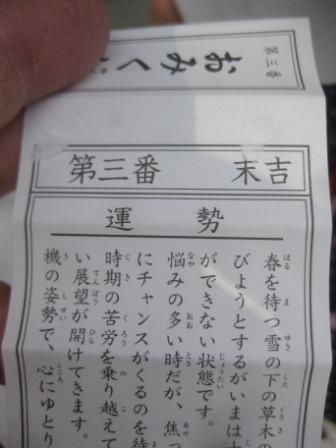 第三番
おみく
第三番 末吉
運勢
春を待つ雪の下の草木の
びようとするがいまは
ができない状態です。
悩みの多い時だが、焦っ
にチャンスがくるのを待
時期の苦労を乗り越えて
い展望が開けてきます。
機の姿勢で、心にゆとり